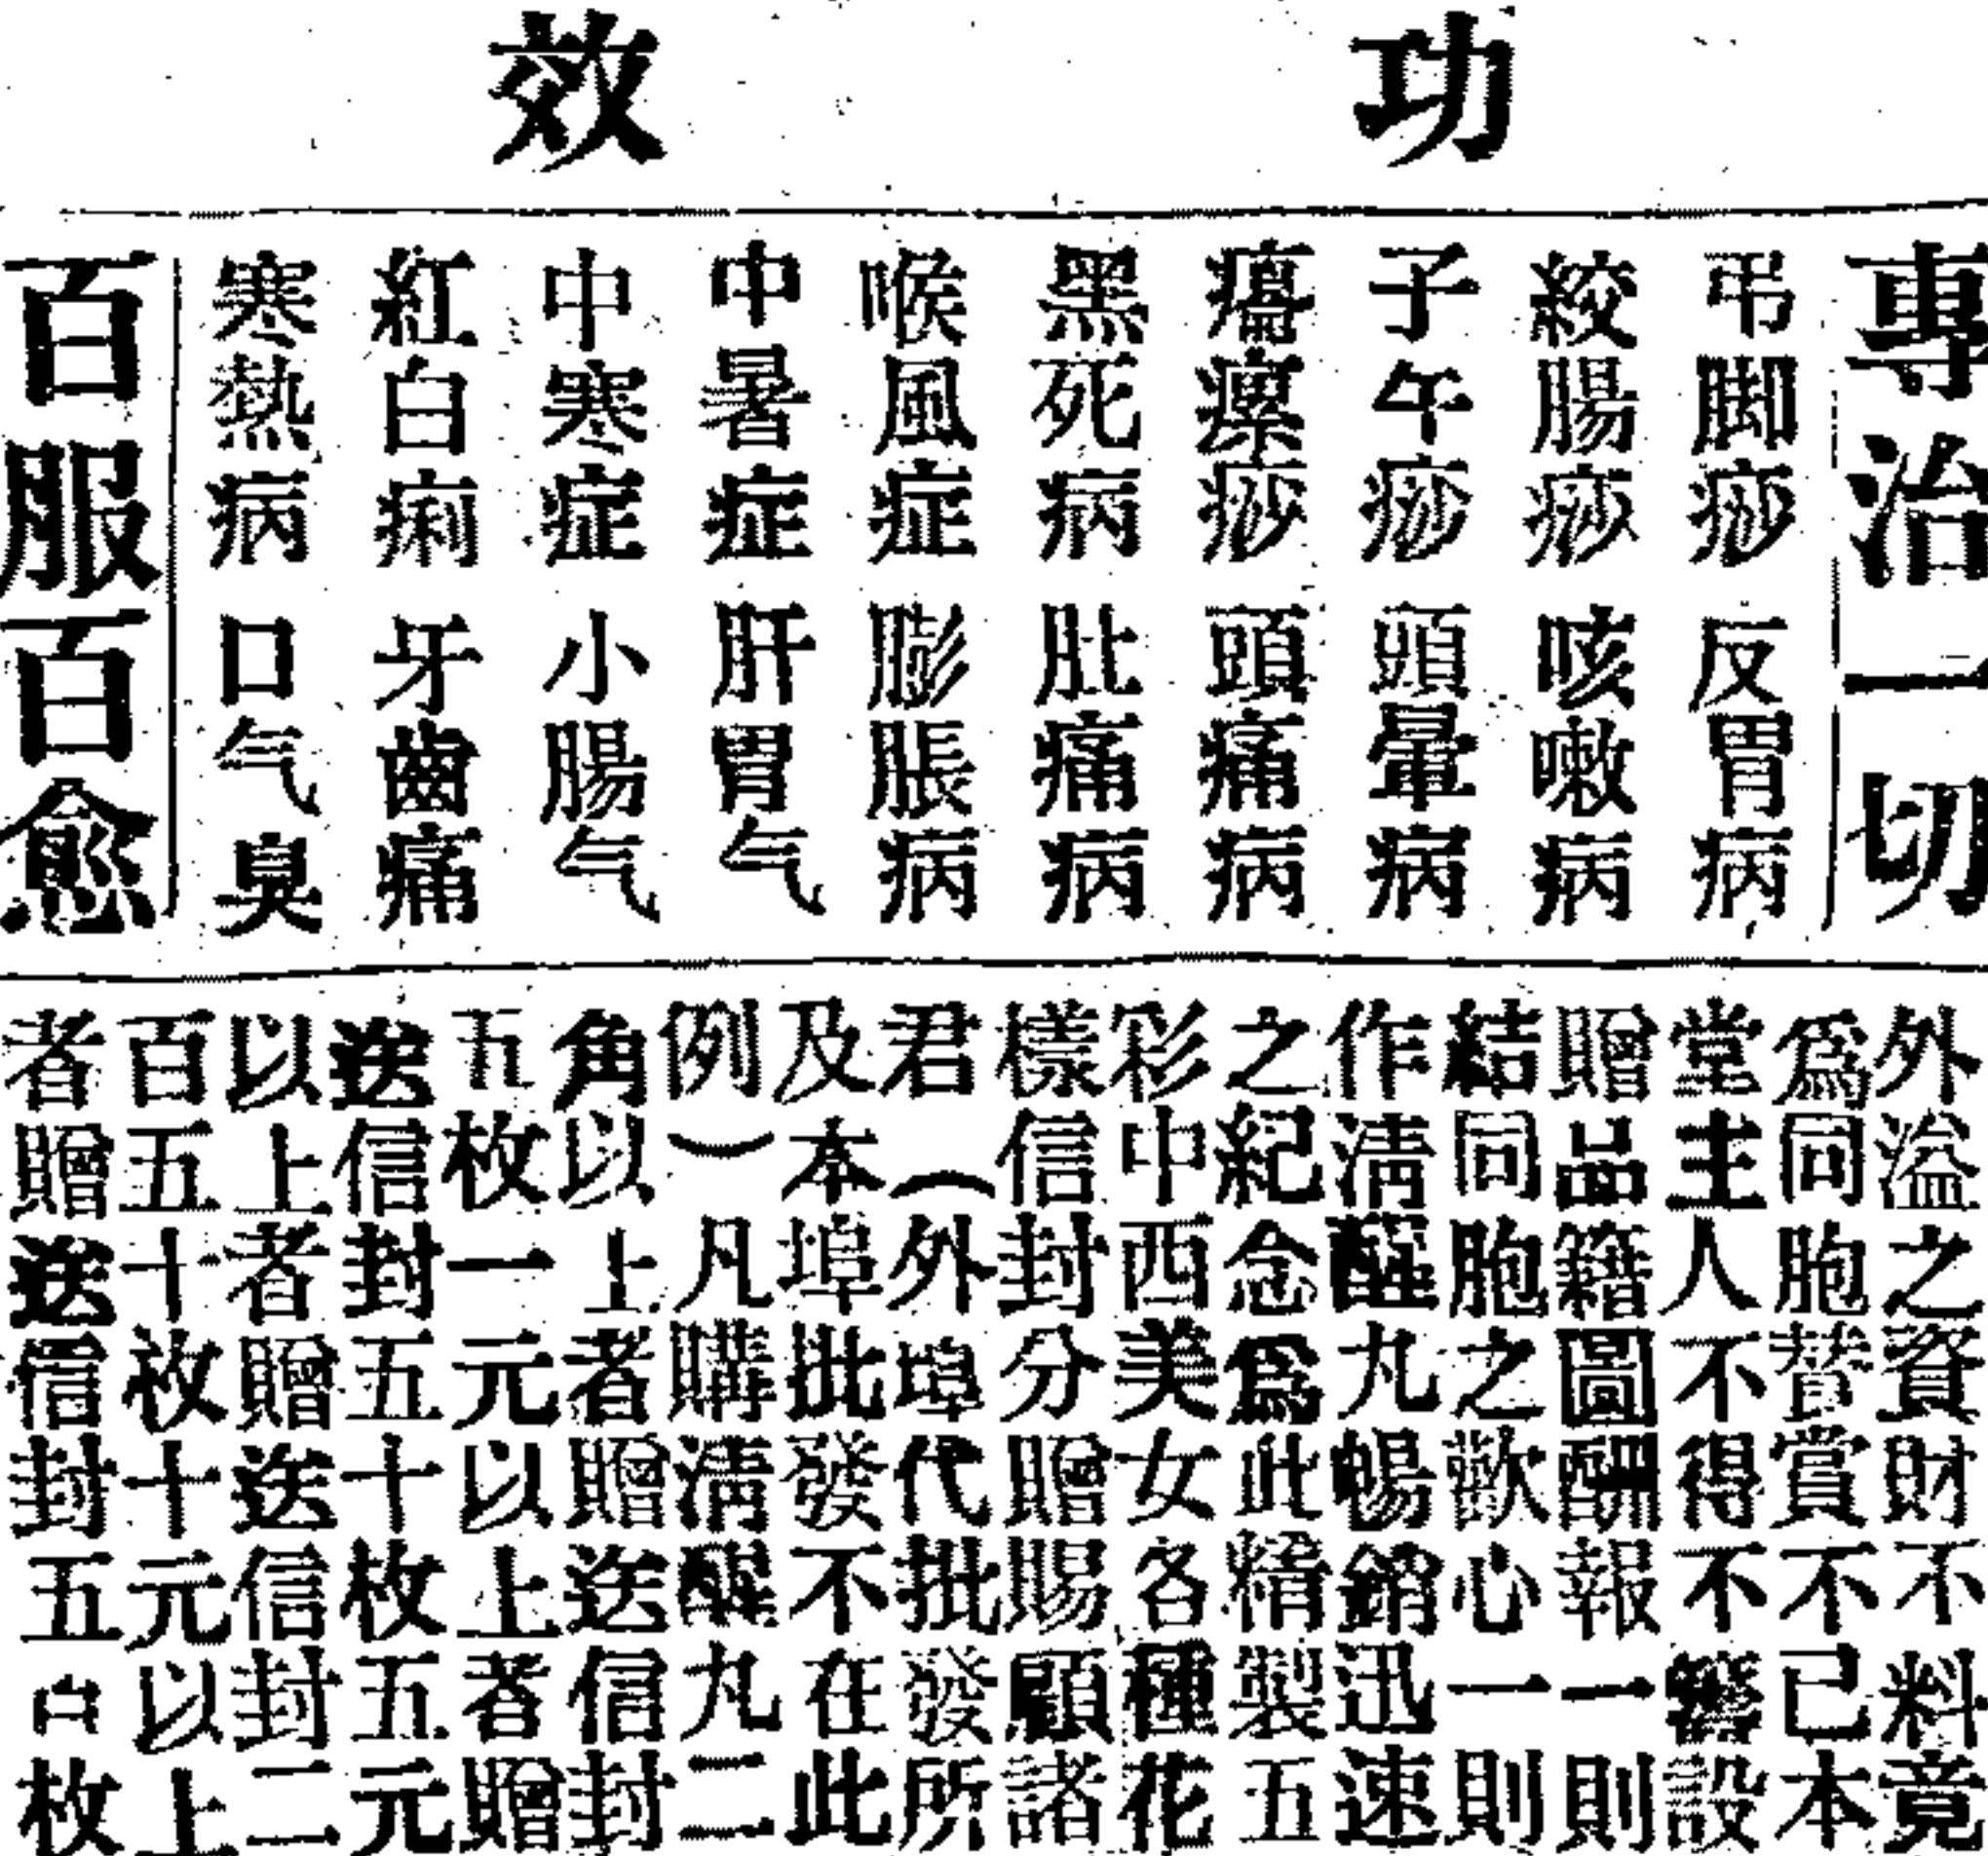 功效
專治一切
吊脚痧 反胃病
絞腸痧 咳嗽病
子午痧 頭暈病
癟瘰痧 頭痛病
黑死病 肚痛病
喉風症 膨脹病
中暑症 肝胃气
中寒症 小腸气
紅白痢 牙齒痛
寒熱病 口气臭
百服百愈
外溢之資財不料竟
爲同胞賛賞不已本
堂主人不得不籌設
贈品籍圖酬報一則
結同胞之歡心一則
作清醒丸暢銷迅速
之紀念爲此精製五
彩中西美女各種花
樣信封分贈賜顧諸
君(外埠代批發所
及本埠批發不在此
例)凡購清醒丸二
角以上者贈送信封
五枚一元以上者贈
送信封五十枚五元
以上者贈送信封二
百五十枚十元以上
者贈送信封五百枚